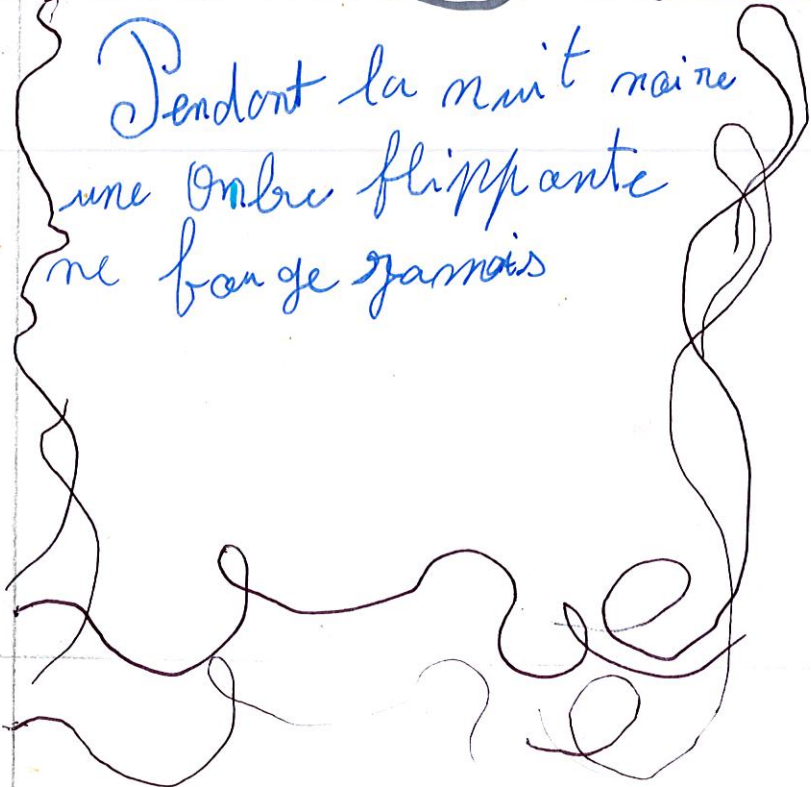 Pendant la nuit noire
une Ombre flippante
ne bouge jamais